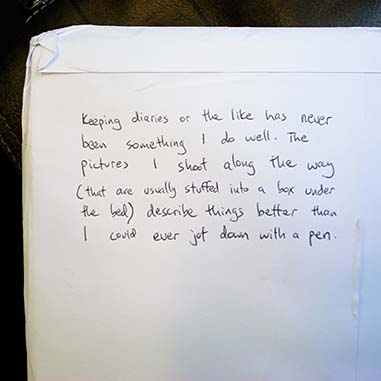 Keeping diaries or the like has never
been something I do well. The
pictures I shoot along the way
(that are usually stuffed into a box under
the bed) describe things better than
I could ever jot down with a pen.